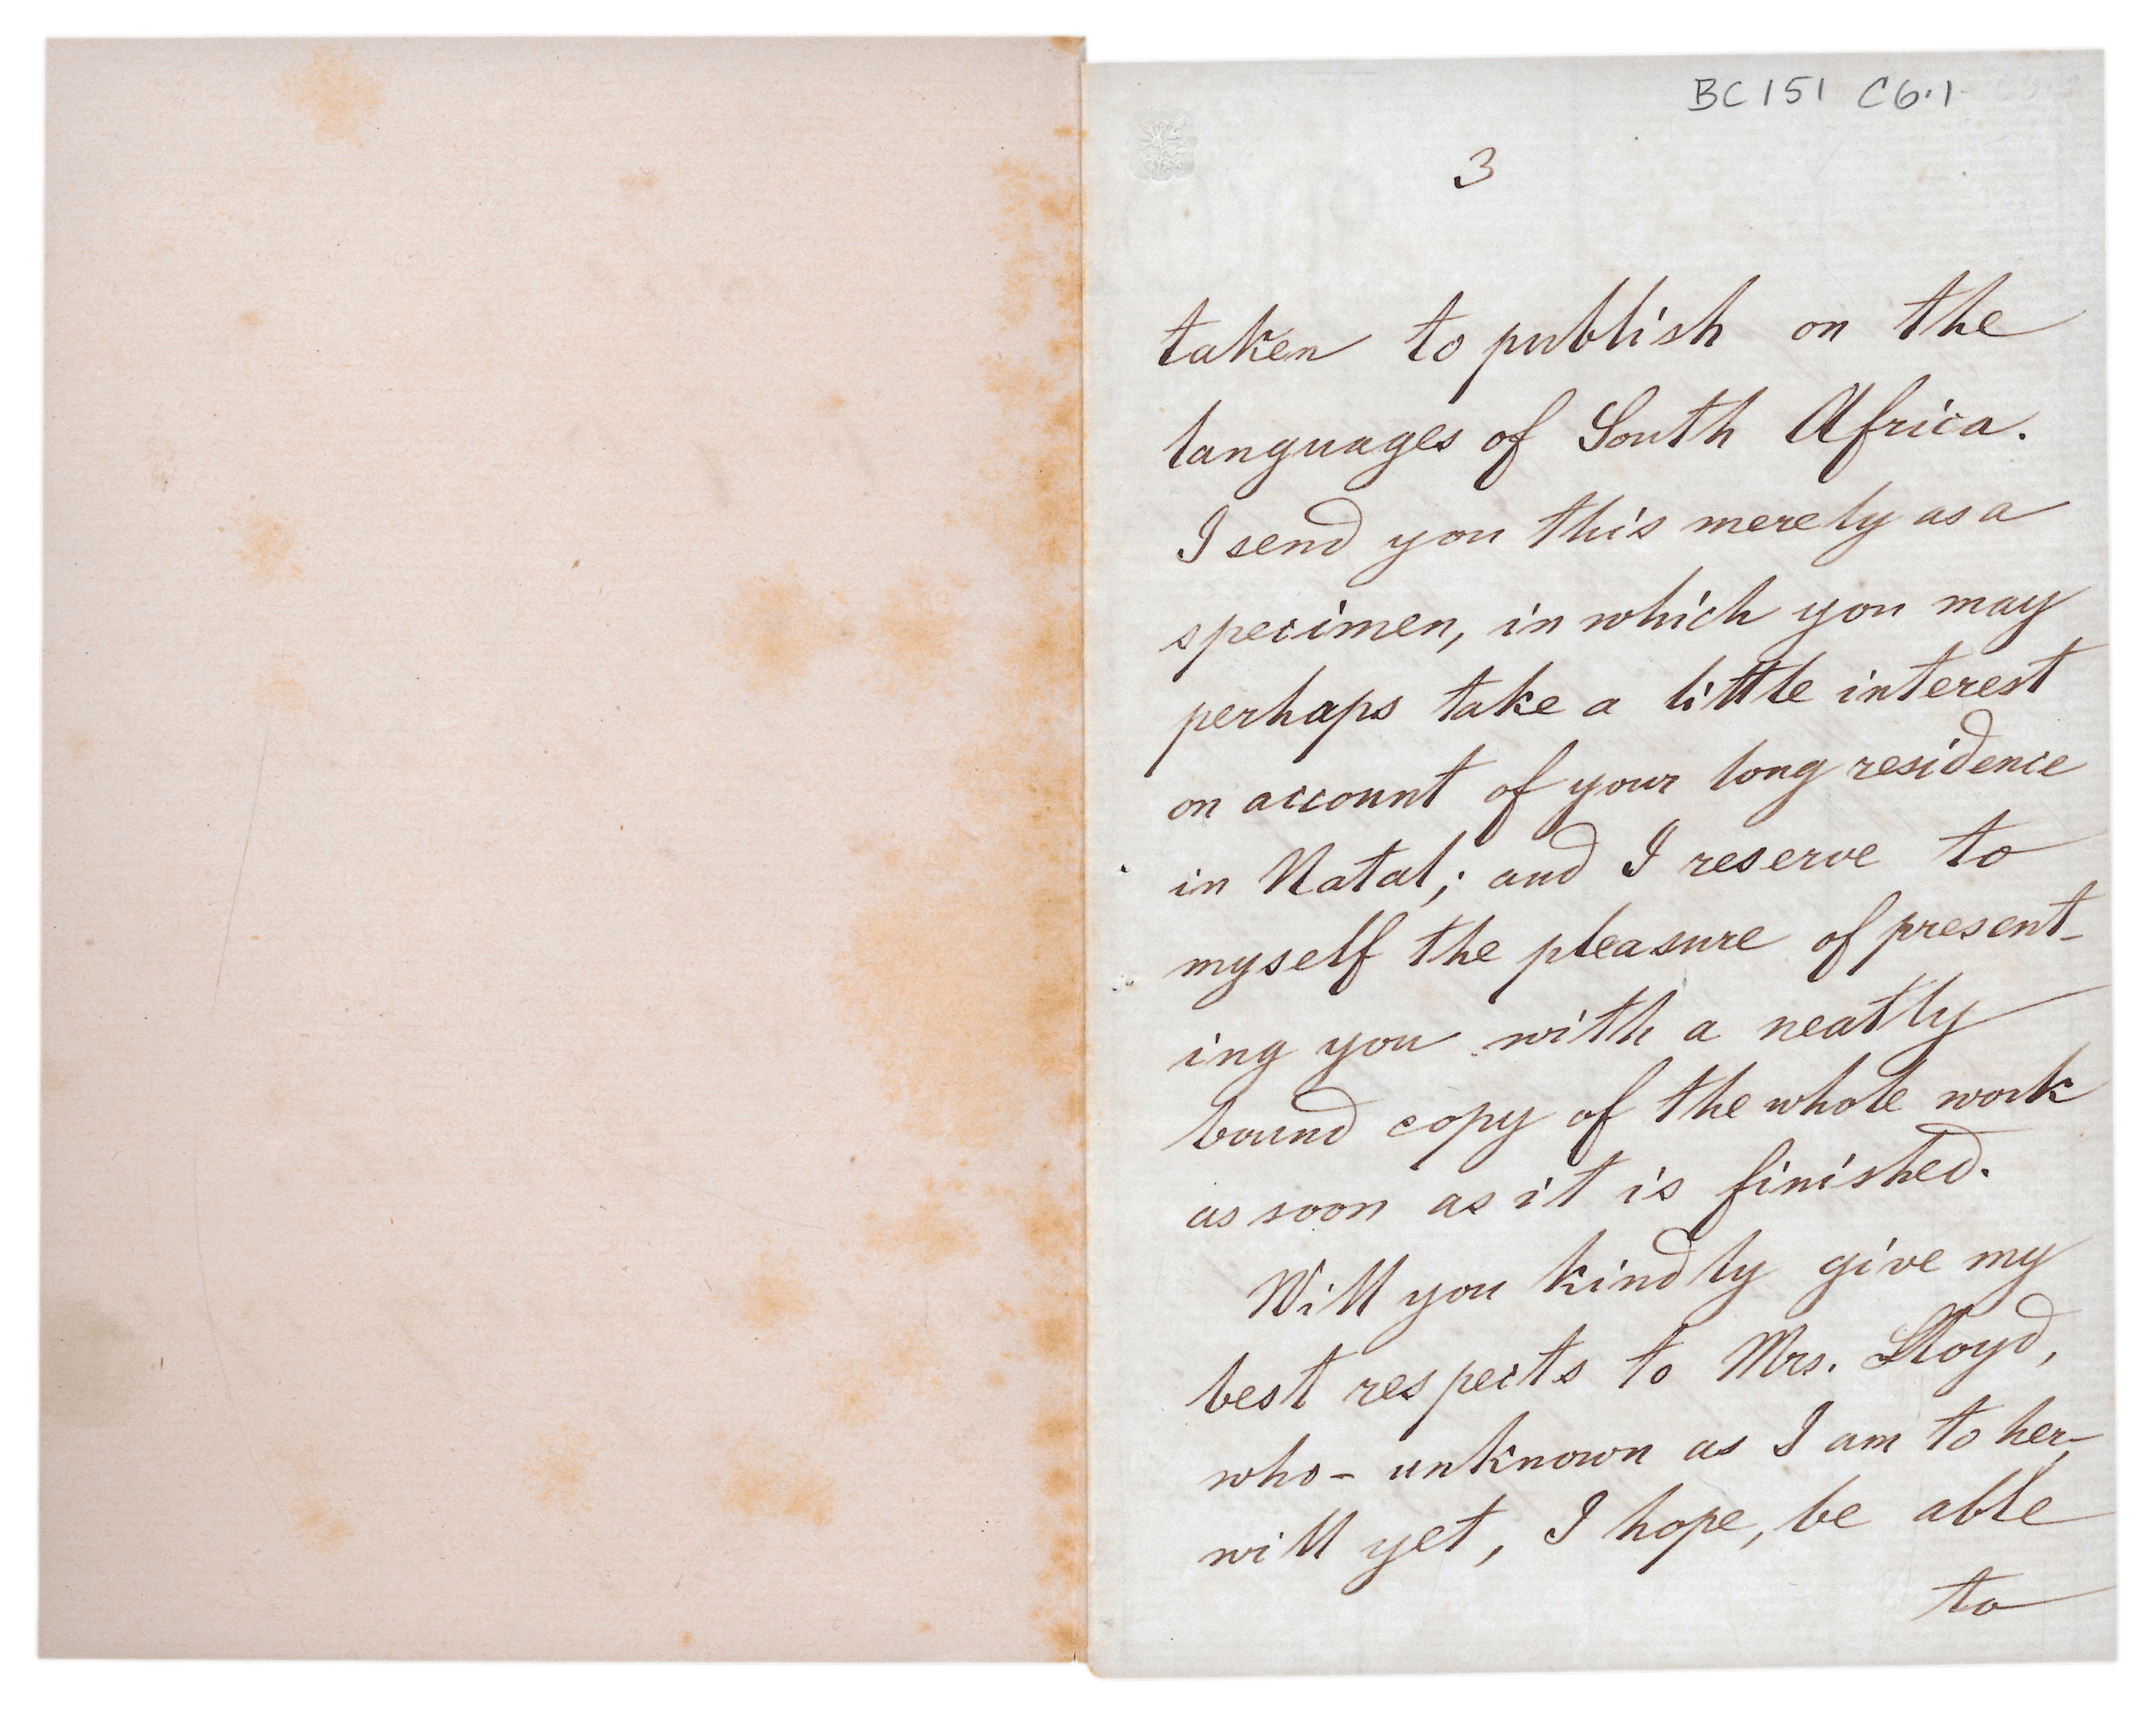 BC 151 C6.1
3
taken to publish on the
languages of South Africa.
I send you this merely as a
specimen, in which you may
perhaps take a little interest
on account of your long residence
in Natal; and I reserve to
myself the pleasure of present-
ing you with a neatly
bound copy of the whole work
as soon as it is finished.
Will you kindly give my
best respects to Mrs. Lloyd,
who - unknown as I am to her -
will yet, I hope, be able
to